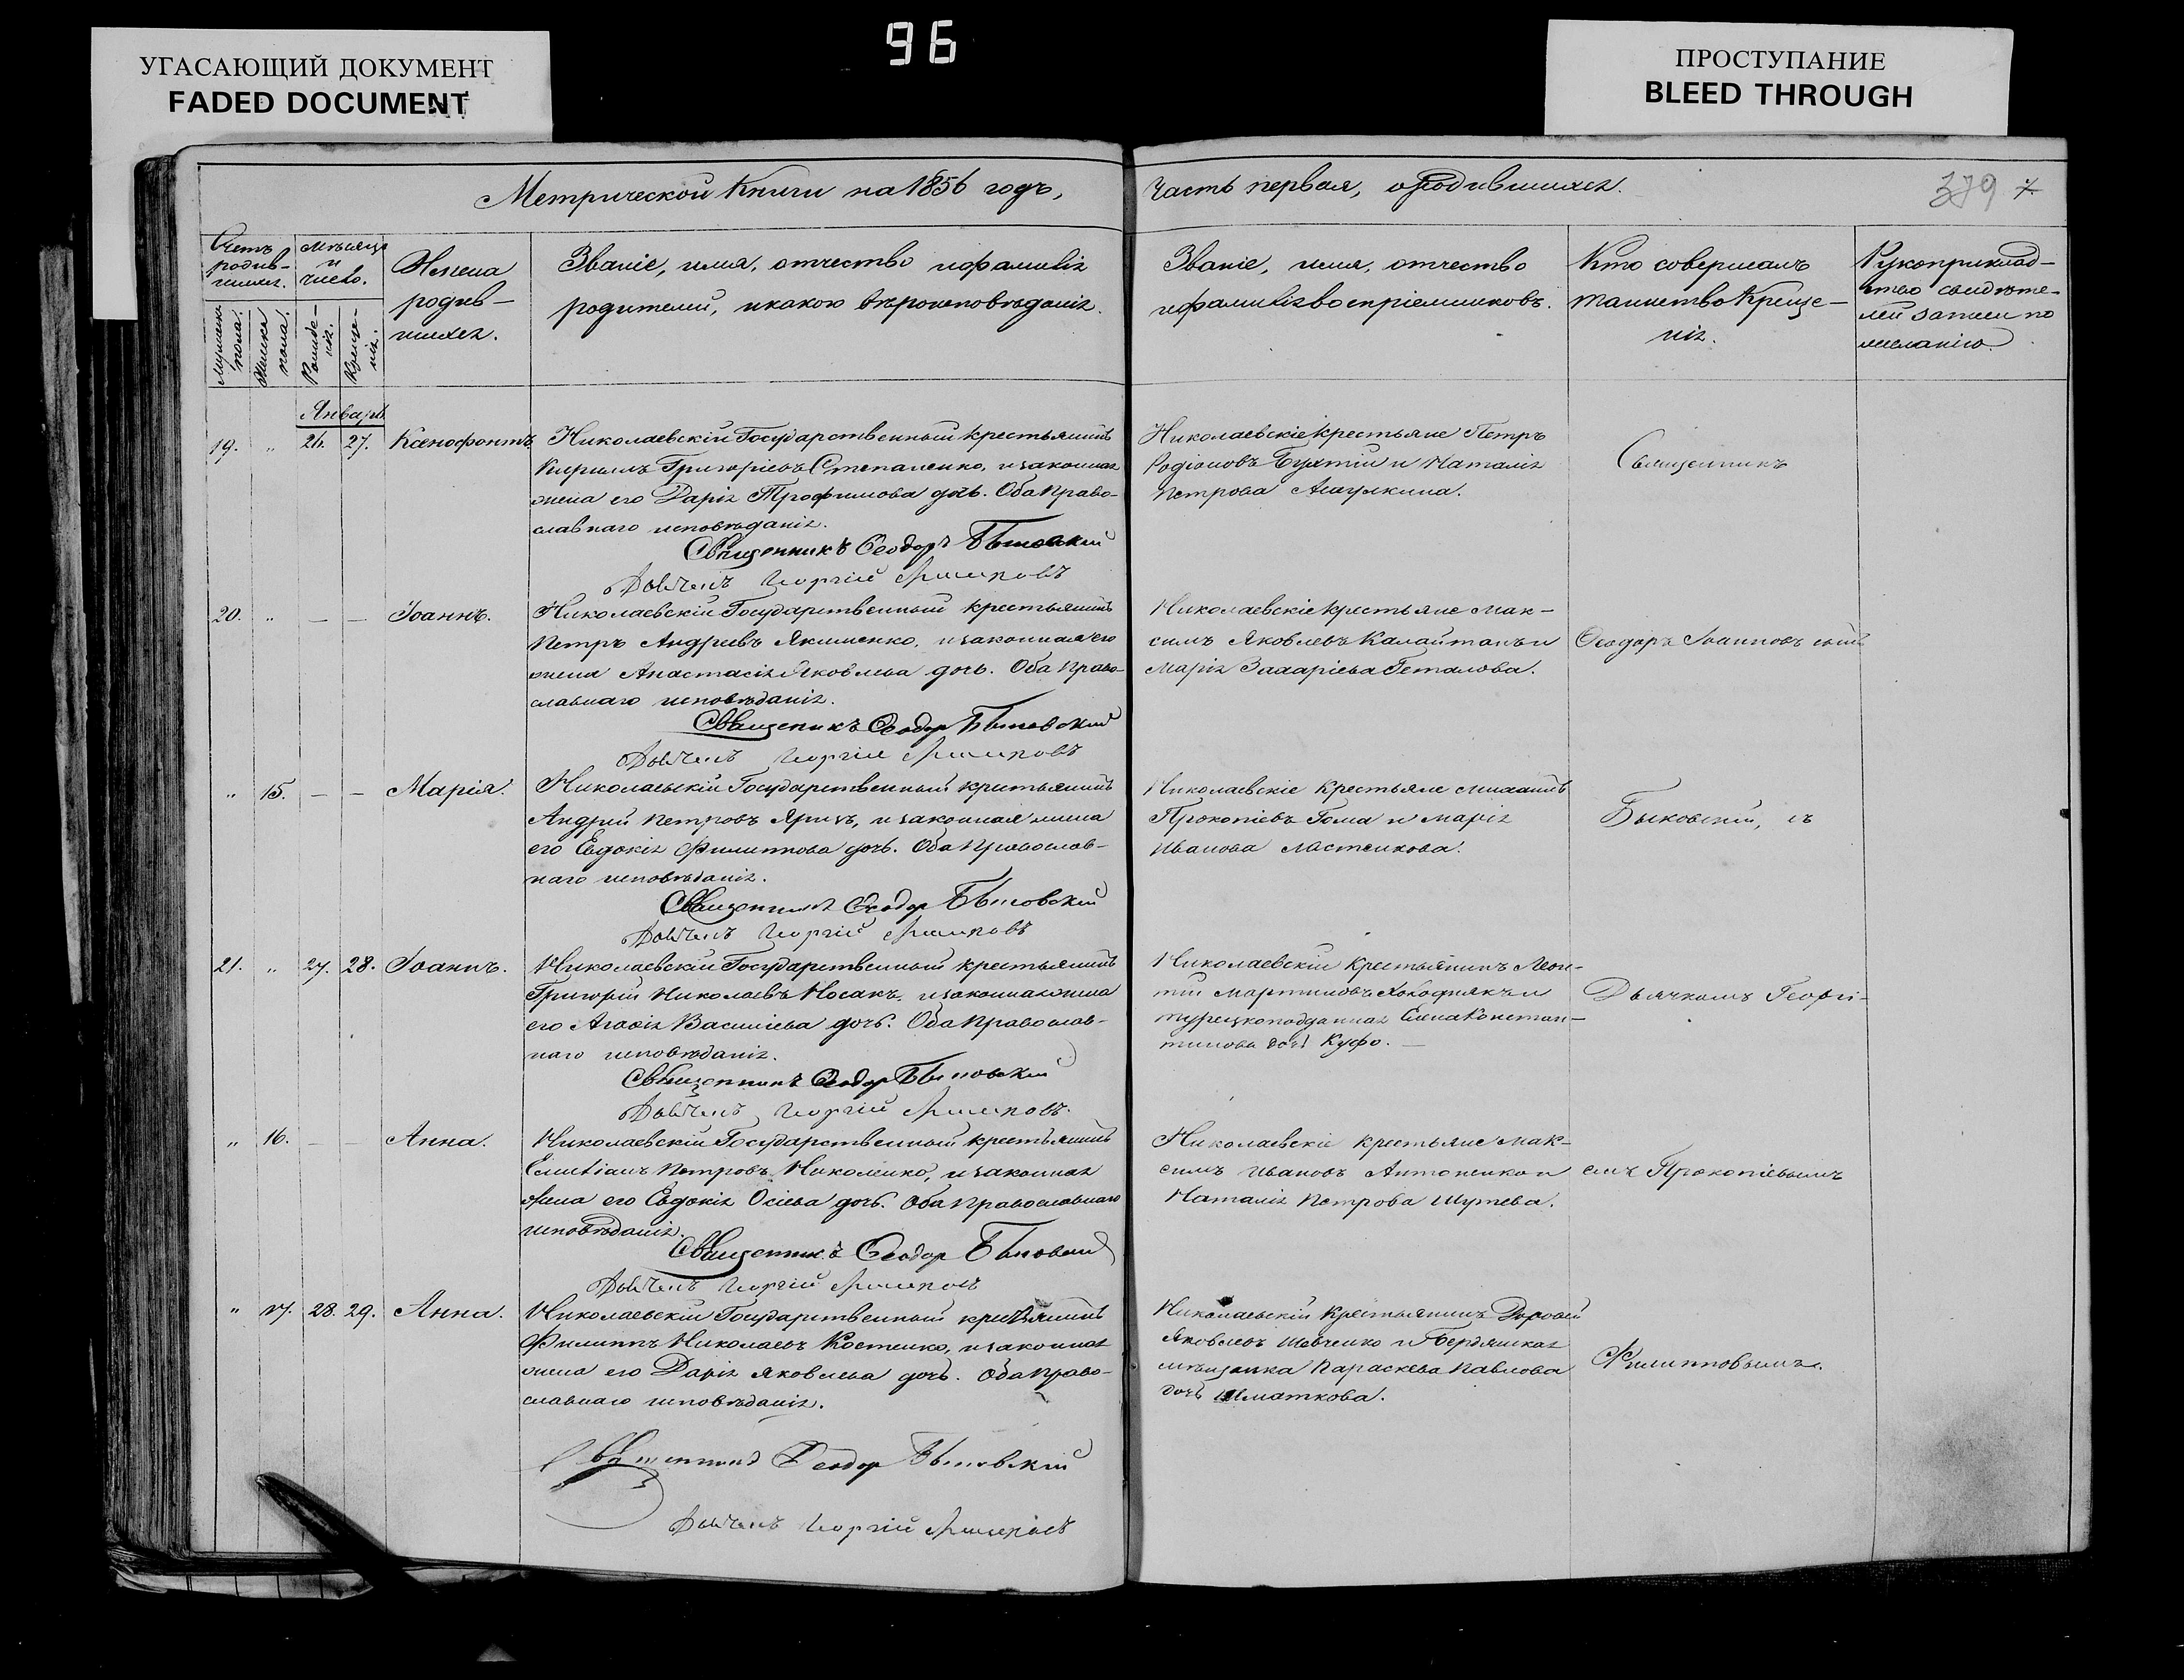 УГАСАЮЩИЙ ДОКУМЕНТ
FADED DOCUMENT
96
ПРОСТУПАНИЕ
BLEED THROUGH
Метрической Книги на 1856 годъ,
Часть первая, о родившихся.
379 7
Счетъ родив-шихся.
Мужеска пола.
Женска пола.
Мѣсяцъ и число.
Рожде-нія.
Креще-нія.
Имена
родив-
шихся.
Званіе, имя, отчество и фамилія
родителей, и какого вѣроисповѣданія.
Званіе, имя, отчество
и фамилія воспріемниковъ.
Кто совершалъ
таинство Креще-
нія.
Рукоприклад-
ство свидѣте-
лей записи по
желанію.
Январь
19. " 26. 27. Ксенофонтъ.
Николаевскій Государственный крестьянинъ
Кириллъ Григоріевъ Степаненко, и законная
жена его Дарія Трофимова дочь. Оба Право-
славнаго исповѣданія.
Священникъ Ѳеодоръ Быковскій
Дьячекъ Георгій
Николаевскіе крестьяне Петръ
Родіоновъ и Наталія
Петрова
Священникъ
20. " — — Іоаннъ.
Николаевскій Государственный крестьянинъ
Петръ Андреевъ Якименко, и законная его
жена Анастасія Яковлева дочь. Оба Право-
славнаго исповѣданія.
Священникъ Ѳеодоръ Быковскій
Дьячекъ Георгій
Николаевскіе крестьяне Мак-
симъ Яковлевъ Калайтанъ и
Марія Захаріева Геталова.
Ѳеодоръ Іоанновъ сынъ
" 15. — — Марія.
Николаевскій Государственный крестьянинъ
Андрей Петровъ и законная жена
его Евдокія Филиппова дочь. Оба Православ-
наго исповѣданія.
Священникъ Ѳеодоръ Быковскій
Дьячекъ Георгій
Николаевскіе крестьяне Михаилъ
Прокопіевъ Гома и Марія
Иванова
Быковскій, съ
21. " 27. 28. Іоаннъ.
Николаевскій Государственный крестьянинъ
Григорій Николаевъ Носакъ, и законная жена
его Агафія Василіева дочь. Оба Православ-
наго исповѣданія.
Священникъ Ѳеодоръ Быковскій
Дьячекъ Георгій
Николаевскій крестьянинъ Леон-
тій Мартиновъ и
турецкоподданная Елена Констан-
тинова дочь Куфо. —
Дьячкомъ Георгі-
" 16. — — Анна.
Николаевскій Государственный крестьянинъ
Емиліанъ Петровъ Николенко, и законная
жена его Евдокія Осіева дочь. Оба Православнаго
исповѣданія.
Священникъ Ѳеодоръ Быковскій
Дьячекъ Георгій
Николаевскіе крестьяне Мак-
симъ Ивановъ Антоненко и
Наталія Петрова Шутева.
емъ Прокопіевымъ
" 17. 28. 29. Анна.
Николаевскій Государственный крестьянинъ
Филиппъ Николаевъ Костенко, и законная
жена его Дарія Яковлева дочь. Оба Право-
славнаго исповѣданія.
Священникъ Ѳеодоръ Быковскій
Дьячекъ Георгій
Николаевскій крестьянинъ Дорофей
Яковлевъ Шевченко и Бердянская
мѣщанка Параскева Павлова
дочь Шматкова.
Филипповымъ.